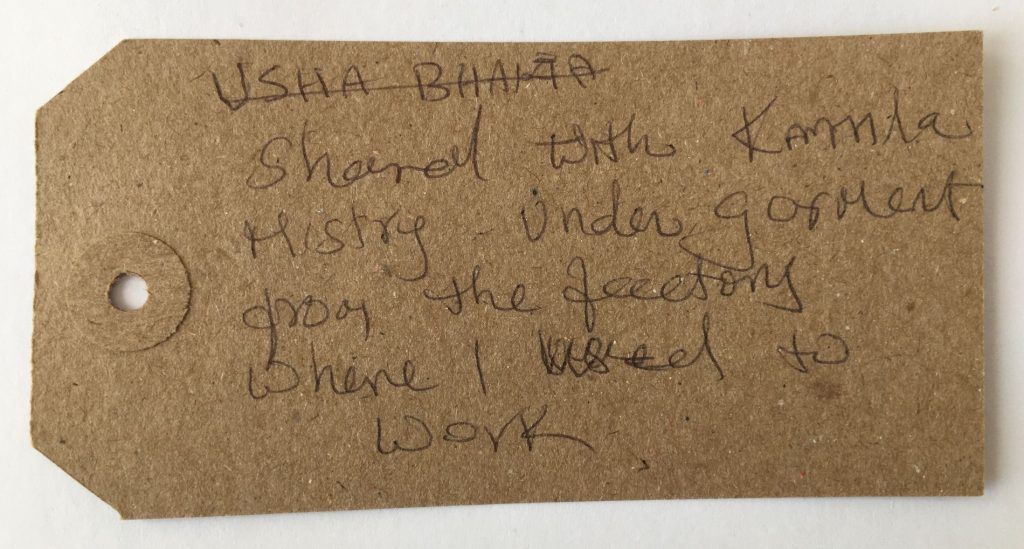 USHA BHAKTA
Shared with Kamla
Mistry - Under garment
from the factory
where I used to
work.